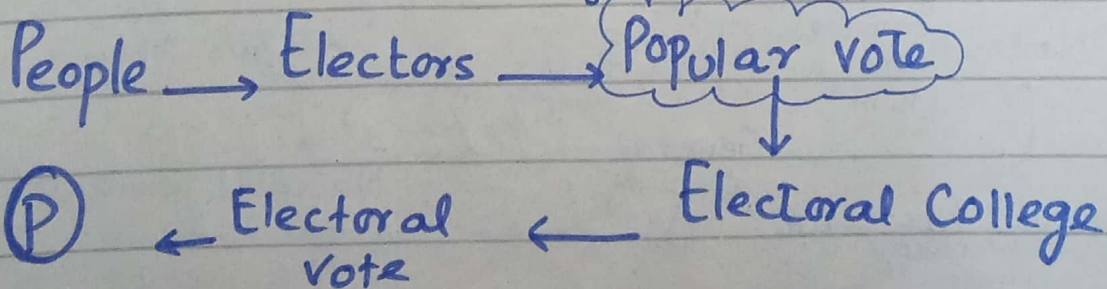 People → Electors → Popular vote
Ⓟ ← Electoral ← Electoral College
vote